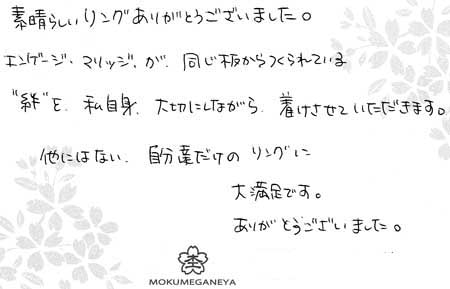 素晴らしいリングありがとうございました。
エンゲージ、マリッジ、が、同じ板からつくられている
"絆"を、私自身、大切にしながら、着けさせていただきます。
他にはない、自分達だけの リングに
大満足です。
ありがとうございました。
MOKUMEGANEYA